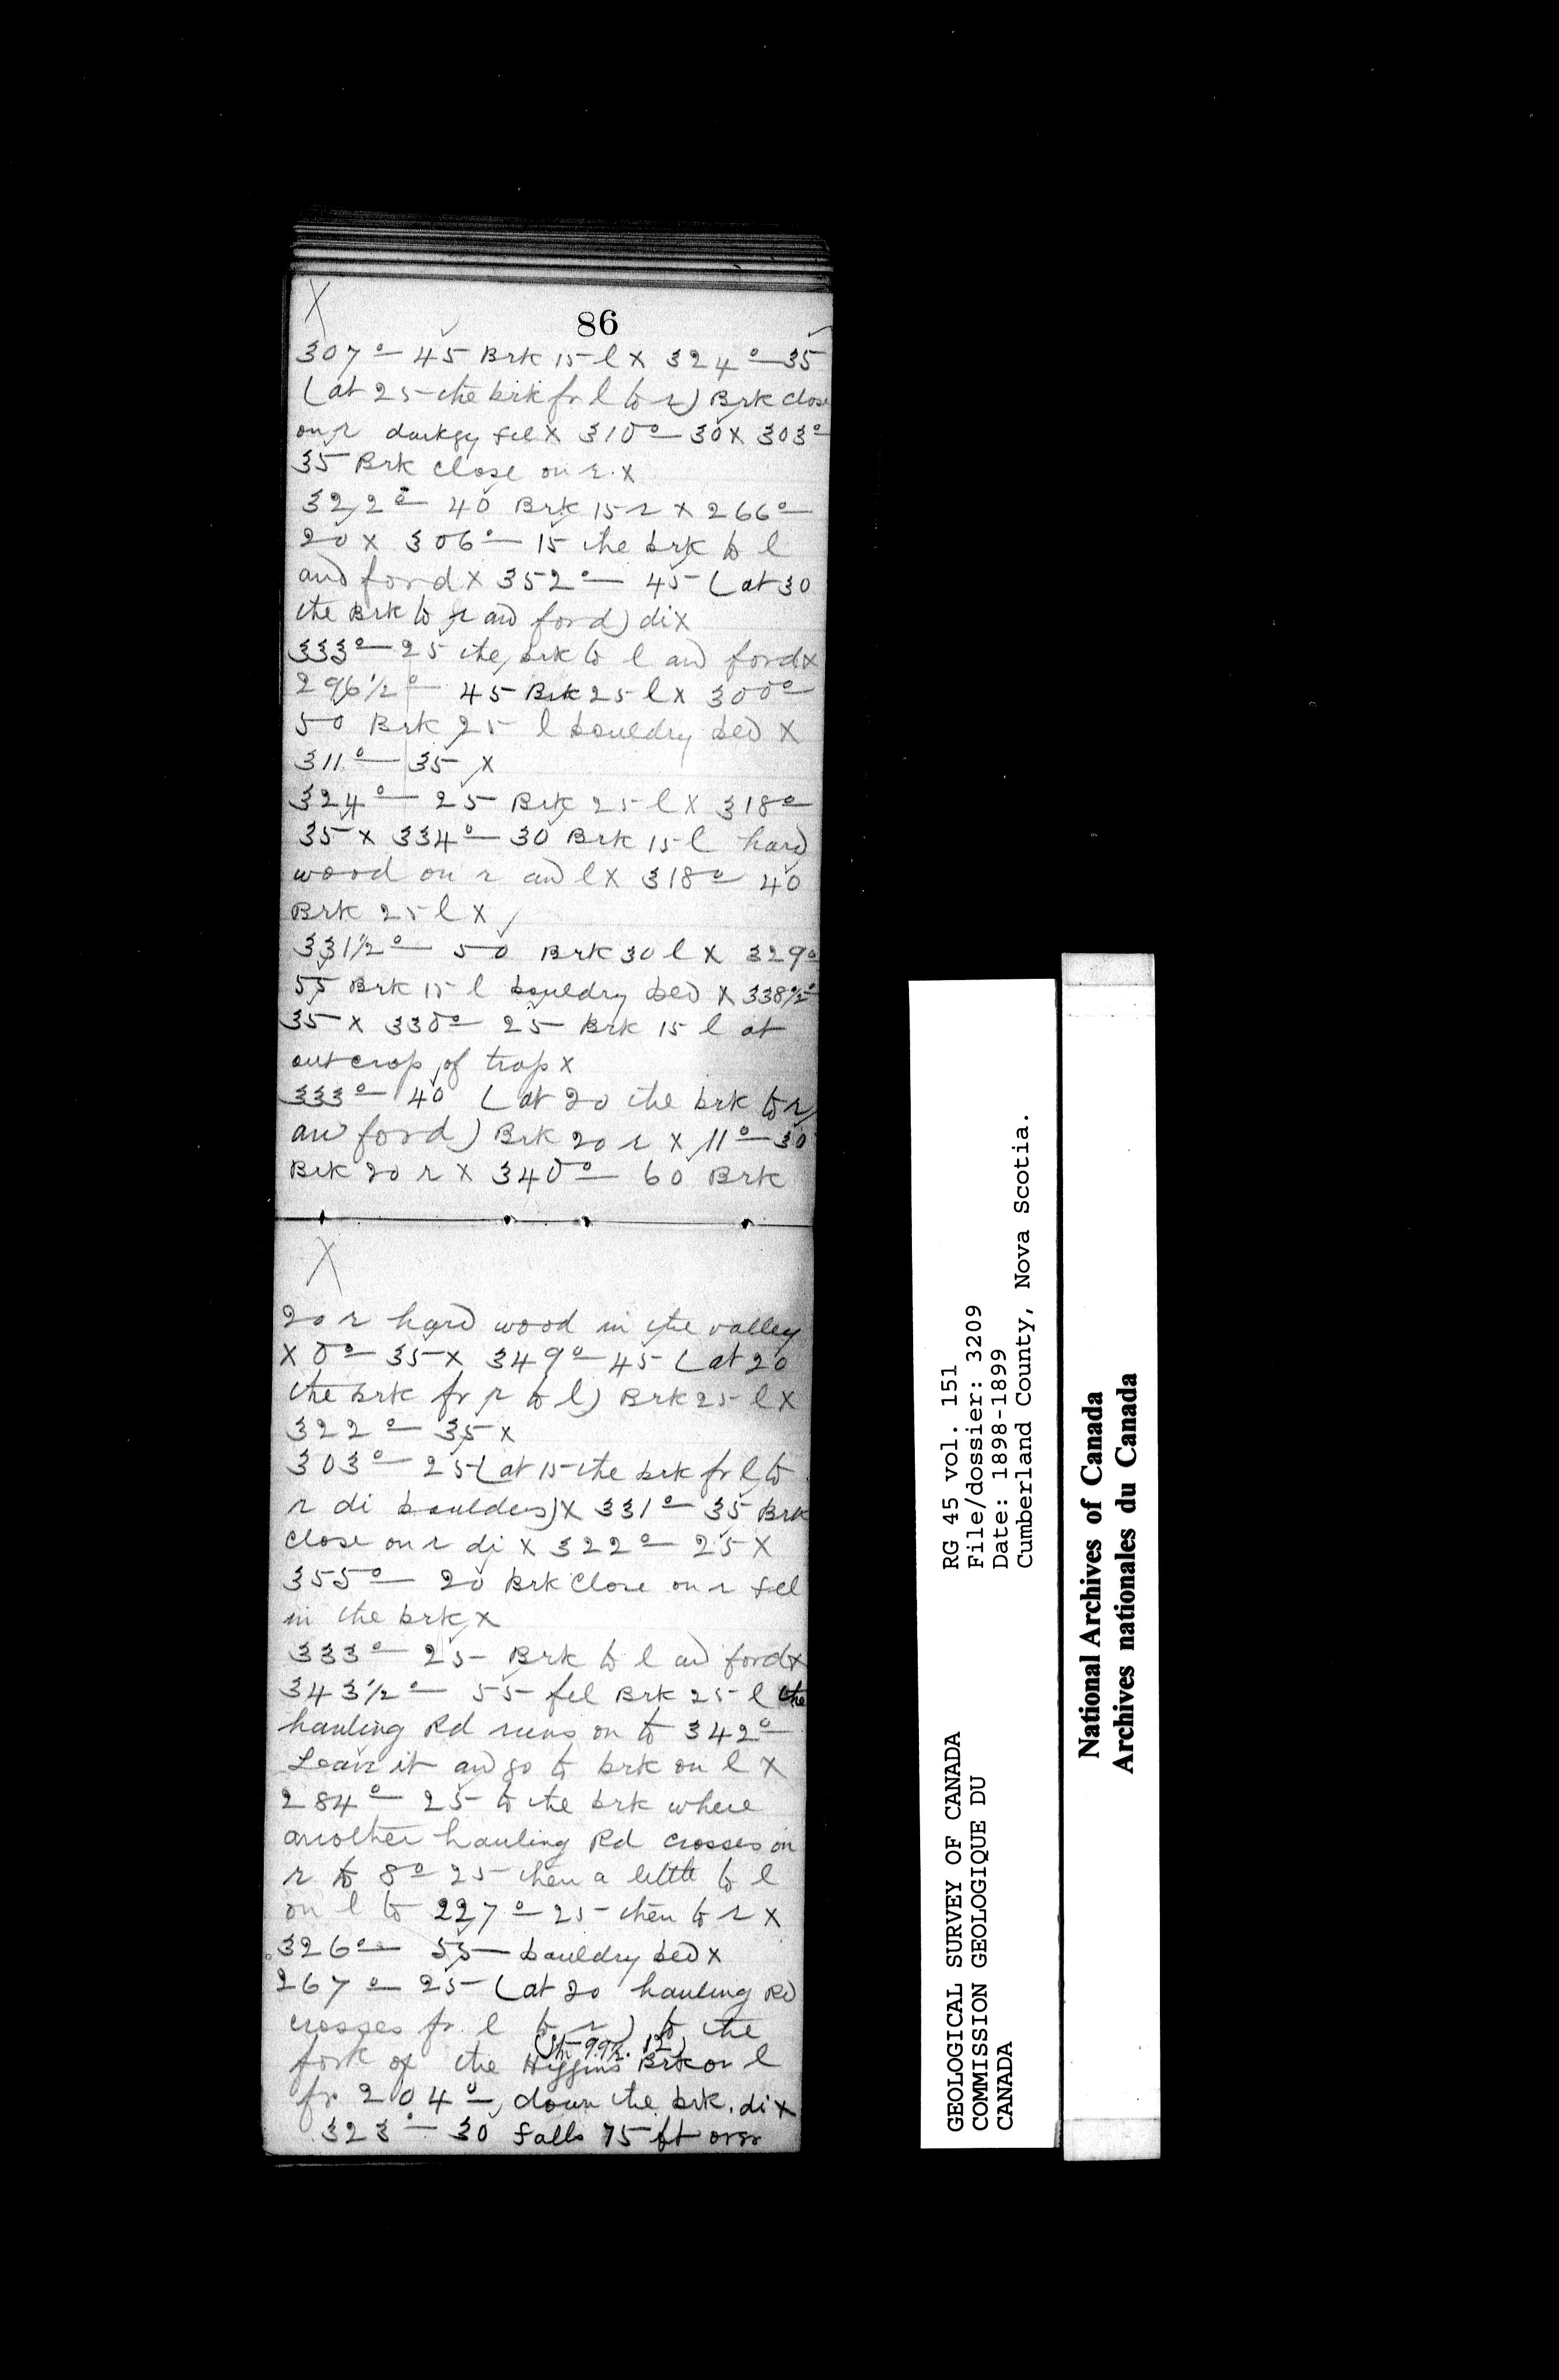 X
86
307° — 45 Brk 15 l X 324° — 35
(at 25 the brk fr l to r) Brk close
on r dark gy fel X 310° — 30 X 303°
35 Brk close on r. X
322° — 40 Brk 15 r X 266° —
20 X 306° — 15 the brk to l
and ford X 352° — 45 (at 30
the Brk to r and ford) di X
333° — 25 the brk to l and ford X
296 1/2° — 45 Brk 25 l X 300° —
50 Brk 25 l bouldry bed X
311° — 35 X
324° — 25 Brk 25 l X 318° —
35 X 334° — 30 Brk 15 l hard
wood on r and l X 318° — 40
Brk 25 l X
331 1/2° — 50 Brk 30 l X 329° —
55 Brk 15 l bouldry bed X 338 1/2° —
35 X 330° — 25 Brk 15 l at
outcrop of trap X
333° — 40 (at 20 the brk to r
and ford) Brk 20 r X 11° — 30
Brk 20 r X 340° — 60 Brk
X
20 r hard wood in the valley
X 0° — 35 X 349° — 45 (at 20
the brk fr r to l) Brk 25 l X
322° — 35 X
303° — 25 (at 15 the brk fr l to
r di boulders) X 331° — 35 Brk
close on r di X 322° — 25 X
355° — 20 Brk close on r fel
in the brk X
333° — 25 — Brk to l and ford X
343 1/2° — 55 fel Brk 25 l the
hauling Rd runs on to 342° —
Leave it and go to brk on l X
284° — 25 to the brk where
another hauling Rd crosses on
r to 8° 25 then a little to l
on l to 227° — 25 then to r X
326° — 55 — bouldry bed X
267° — 25 (at 20 hauling Rd
crosses fr. l to r) to the
fork of the Higgins Brk on l
fr 204° —, down the brk. di X
323° — 30 falls 75 ft over
GEOLOGICAL SURVEY OF CANADA
COMMISSION GEOLOGIQUE DU
CANADA
RG 45 vol. 151
File/dossier: 3209
Date: 1898-1899
Cumberland County, Nova Scotia.
National Archives of Canada
Archives nationales du Canada